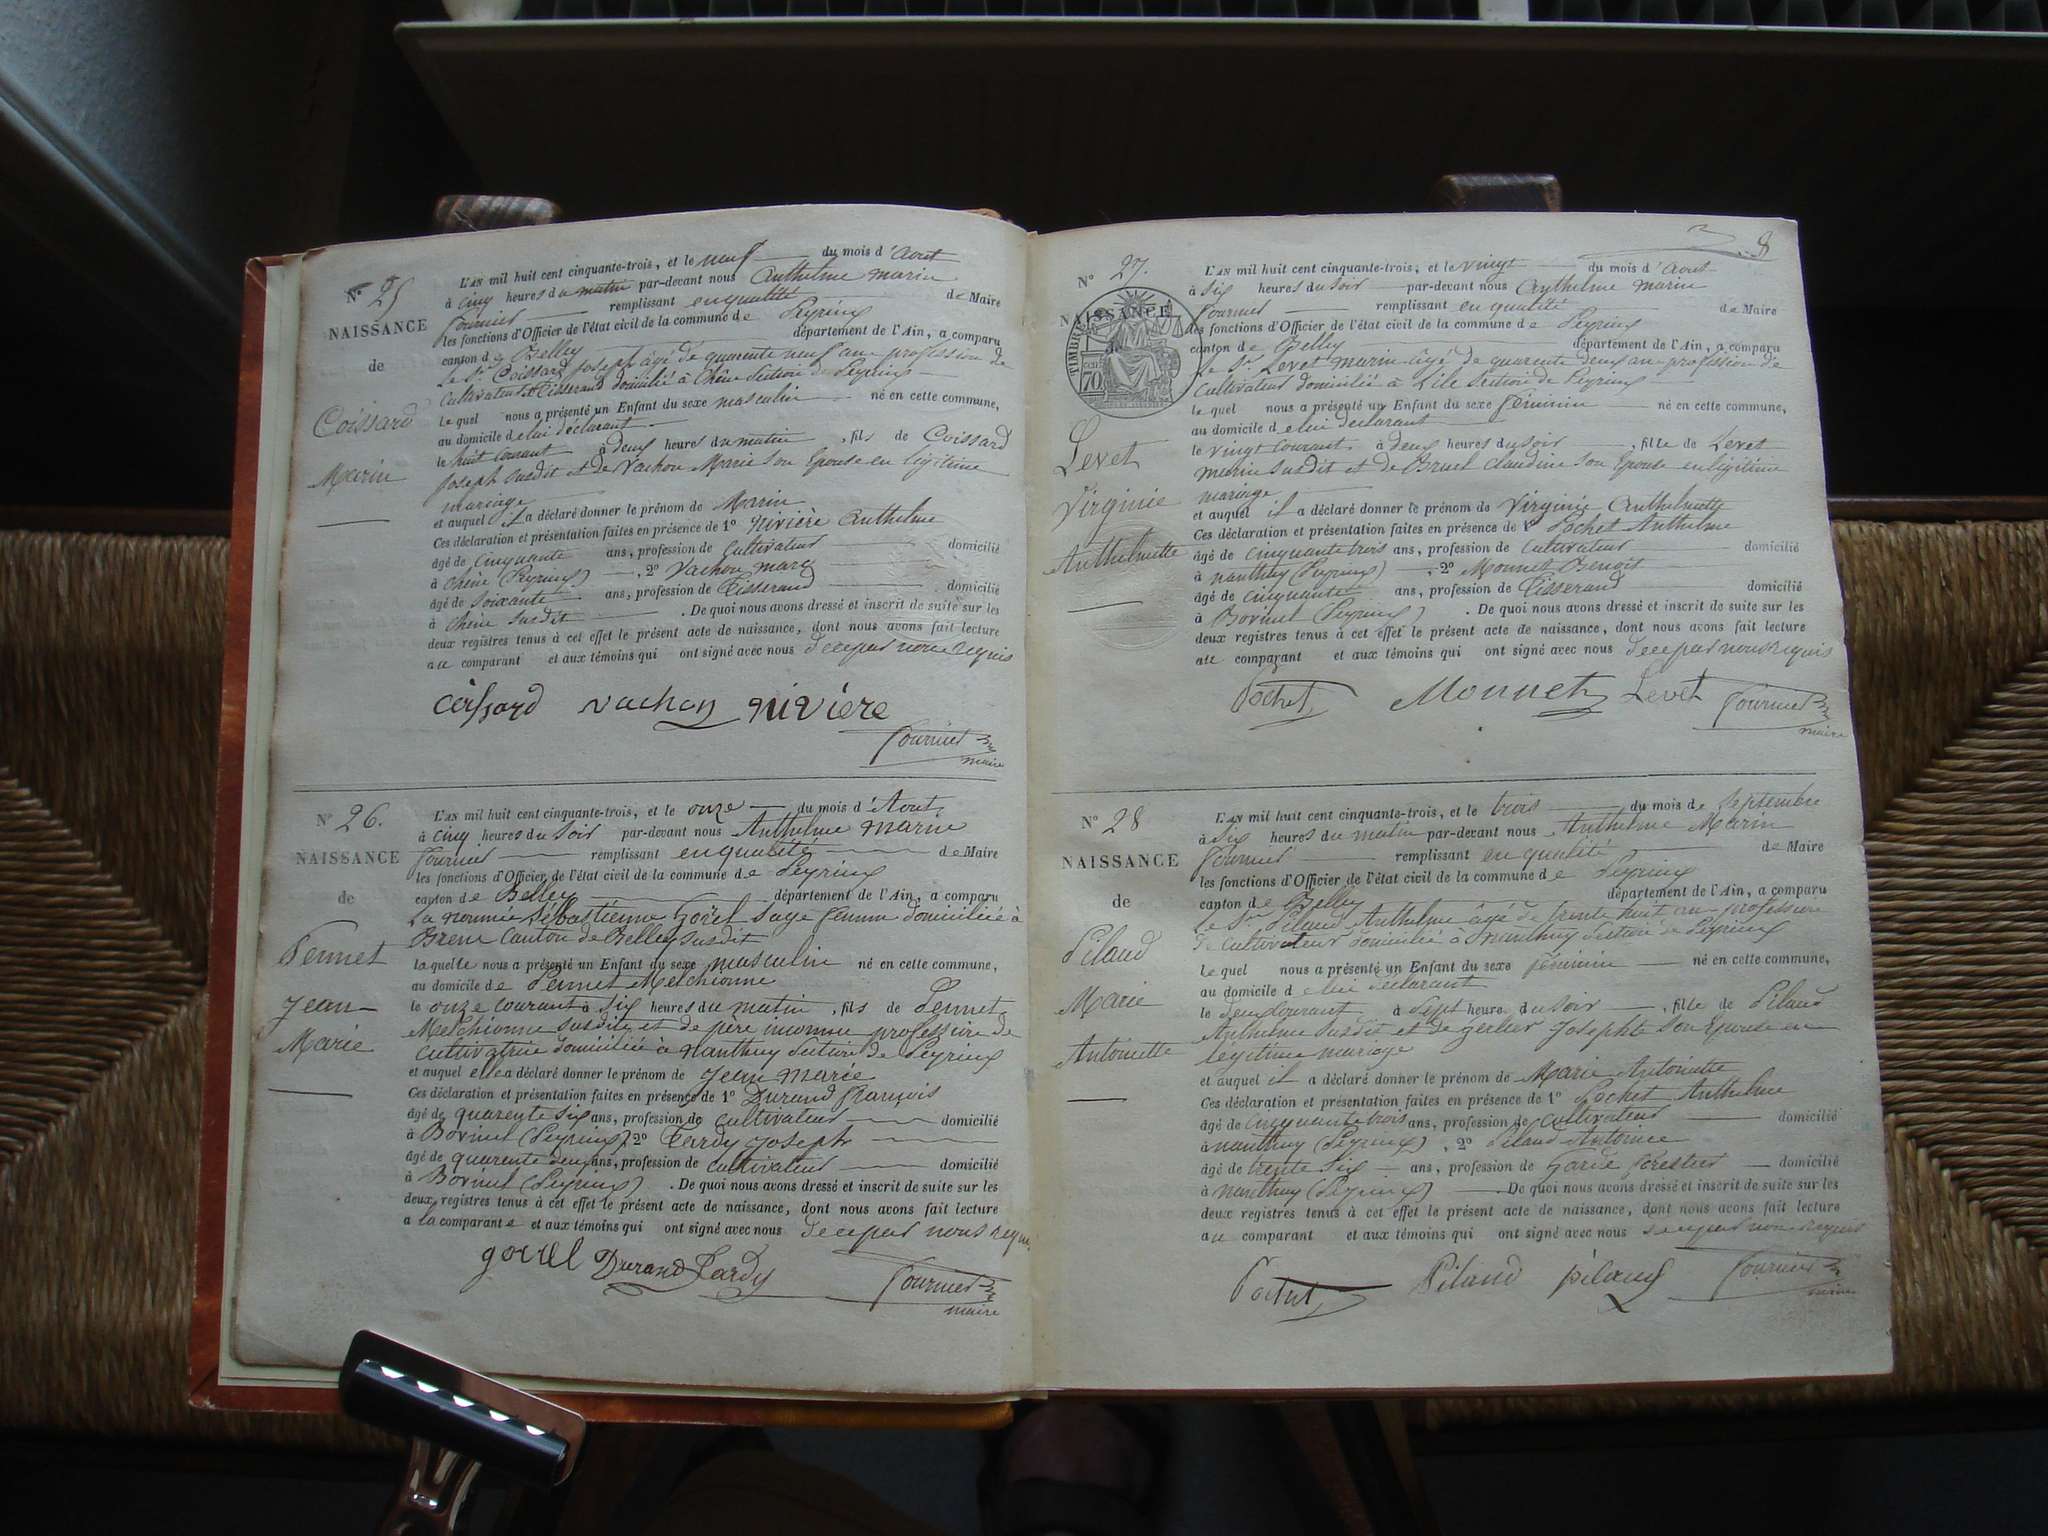 N° 25
NAISSANCE
de
Coissard
Marin
L'AN mil huit cent cinquante-trois, et le neuf du mois d'Aout
à cinq heures du matin par-devant nous Anthelme Marin
Fournier remplissant en qualité de Maire
les fonctions d'Officier de l'état civil de la commune de Peyrieux
canton de Belley département de l'Ain, a comparu
le Sr Coissard Joseph âgé de quarente neuf ans profession de
cultivateur & Tisserand domicilié à Chêne Section de Peyrieux
lequel nous a présenté un Enfant du sexe masculin né en cette commune,
au domicile de lui déclarant
le huit courant à deux heures du matin, fils de Coissard
Joseph susdit et de Vachon Marie son Epouse en légitime
mariage
et auquel il a déclaré donner le prénom de Marin
Ces déclaration et présentation faites en présence de 1° Rivière Anthelme
âgé de cinquante ans, profession de cultivateur domicilié
à Chêne (Peyrieux), 2° Vachon Marc
âgé de soixante ans, profession de Tisserand domicilié
à Chêne susdit. De quoi nous avons dressé et inscrit de suite sur les
deux registres tenus à cet effet le présent acte de naissance, dont nous avons fait lecture
au comparant et aux témoins qui ont signé avec nous de ce par nous requis
Vachon Rivière
Fournier
maire
N° 26.
NAISSANCE
de
Pennet
Jean-
Marie
L'AN mil huit cent cinquante-trois, et le onze du mois d'Aout
à cinq heures du soir par-devant nous Anthelme Marin
Fournier remplissant en qualité de Maire
les fonctions d'Officier de l'état civil de la commune de Peyrieux
canton de Belley département de l'Ain, a comparu
la nommée Sébastienne Gorel Sage femme domiciliée à
Brens Canton de Belley susdit
laquelle nous a présenté un Enfant du sexe masculin né en cette commune,
au domicile de Pennet Melchionne
le onze courant à six heures du matin, fils de Pennet
Melchionne susdite et de père inconnu profession de
cultivatrice domiciliée à Nanthuy Section de Peyrieux
et auquel elle a déclaré donner le prénom de Jean Marie
Ces déclaration et présentation faites en présence de 1° Durand François
âgé de quarente six ans, profession de cultivateur domicilié
à Borinet (Peyrieux), 2° Tardy Joseph
âgé de quarente deux ans, profession de cultivateur domicilié
à Borinet (Peyrieux). De quoi nous avons dressé et inscrit de suite sur les
deux registres tenus à cet effet le présent acte de naissance, dont nous avons fait lecture
a la comparante et aux témoins qui ont signé avec nous de ce par nous requis
gorel Durand Tardy Fournier
maire
8
N° 27.
NAISSANCE
TIMBRE
70
Levet
Virginie
Anthelmette
L'AN mil huit cent cinquante-trois, et le vingt du mois d'Aout
à six heures du soir par-devant nous Anthelme Marin
Fournier remplissant en qualité de Maire
les fonctions d'Officier de l'état civil de la commune de Peyrieux
canton de Belley département de l'Ain, a comparu
le Sr Levet Marin âgé de quarente deux ans profession de
cultivateur domicilié à L'ile section de Peyrieux
lequel nous a présenté un Enfant du sexe féminin né en cette commune,
au domicile de lui déclarant
le vingt courant à deux heures du soir, fille de Levet
Marin susdit et de Bruel Claudine son Epouse en légitime
mariage
et auquel il a déclaré donner le prénom de Virginie Anthelmette
Ces déclaration et présentation faites en présence de 1° Pochet Anthelme
âgé de cinquante trois ans, profession de cultivateur domicilié
à Nanthuy (Peyrieux), 2° Monnet Benoit
âgé de cinquante ans, profession de Tisserand domicilié
à Borinet (Peyrieux). De quoi nous avons dressé et inscrit de suite sur les
deux registres tenus à cet effet le présent acte de naissance, dont nous avons fait lecture
au comparant et aux témoins qui ont signé avec nous de ce par nous requis
Pochet Monnet Levet Fournier
maire
N° 28
NAISSANCE
de
Pilaud
Marie
Antoinette
L'AN mil huit cent cinquante-trois, et le trois du mois de Septembre
à six heures du matin par-devant nous Anthelme Marin
Fournier remplissant en qualité de Maire
les fonctions d'Officier de l'état civil de la commune de Peyrieux
canton de Belley département de l'Ain, a comparu
le Sr Pilaud Anthelme âgé de trente huit ans profession
de cultivateur domicilié à Nanthuy Section de Peyrieux
lequel nous a présenté un Enfant du sexe féminin né en cette commune,
au domicile de lui déclarant
le deux courant à sept heures du soir, fille de Pilaud
Anthelme susdit et de Gerlier Josephte son Epouse en
légitime mariage
et auquel il a déclaré donner le prénom de Marie Antoinette
Ces déclaration et présentation faites en présence de 1° Pochet Anthelme
âgé de cinquante trois ans, profession de cultivateur domicilié
à Nanthuy (Peyrieux), 2° Pilaud Antoine
âgé de trente six ans, profession de Garde forestier domicilié
à Nanthuy (Peyrieux). De quoi nous avons dressé et inscrit de suite sur les
deux registres tenus à cet effet le présent acte de naissance, dont nous avons fait lecture
au comparant et aux témoins qui ont signé avec nous de ce par nous requis
Pochet Pilaud pilaud Fournier
maire